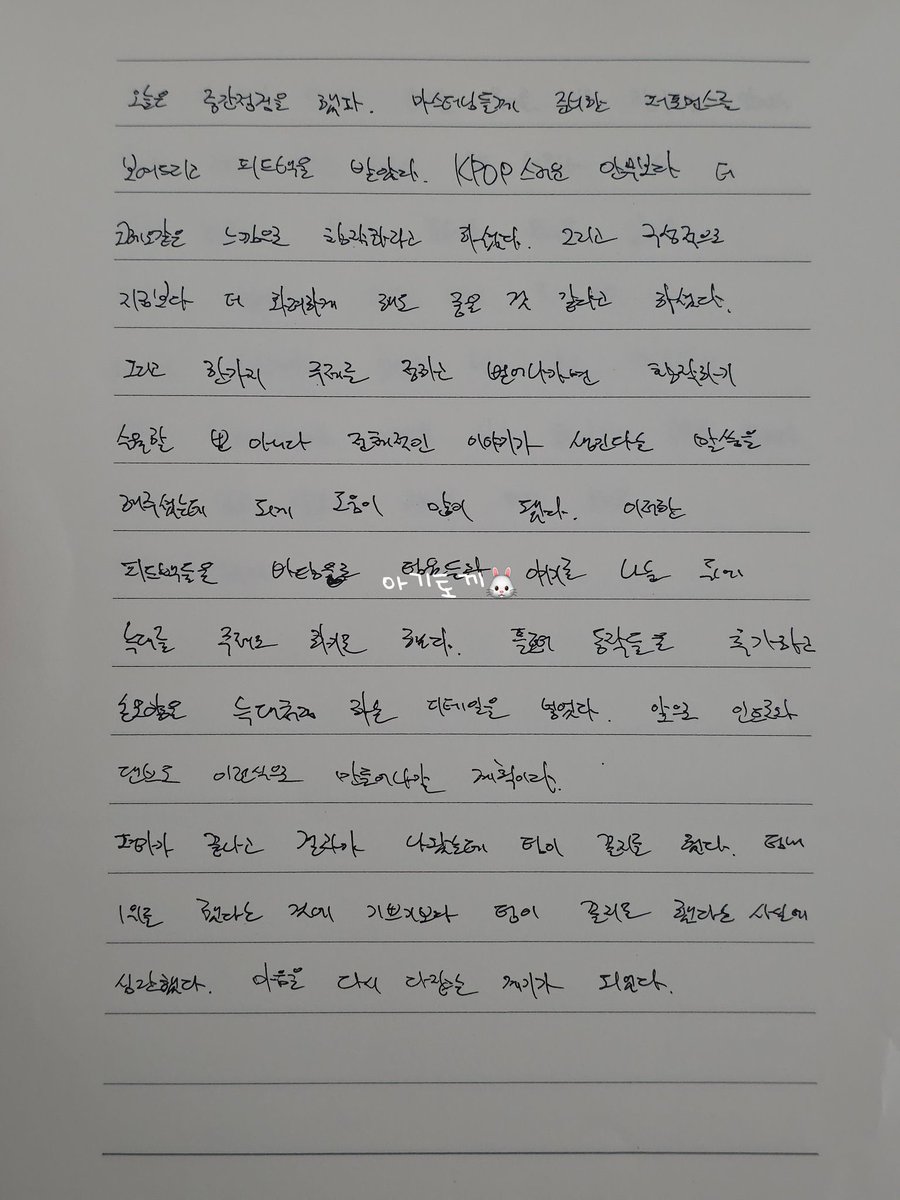 오늘은 중간점검을 했다. 마스터님들께 준비한 퍼포먼스를
보여드리고 피드백을 받았다. KPOP스러운 안무보다 더
코레오같은 느낌으로 창작하라고 하셨다. 그리고 구성적으로
지금보다 더 화려하게 해도 좋을 것 같다고 하셨다.
그리고 한가지 주제를 정하고 뻗어나가면 창작하기
수월할 뿐 아니라 전체적인 이야기가 생긴다는 말씀을
해주셨는데 되게 도움이 많이 됐다. 이러한
피드백들을 바탕으로 팀원들과 얘기를 나눈 뒤에
아기토끼🐰
늑대를 주제로 회의를 했다. 동작들을 추가하고
손모양은 늑대처럼 하는 디테일을 넣었다. 앞으로 인트로와
댄브도 이런식으로 만들어나갈 계획이다.
평가가 끝나고 결과가 나왔는데 팀이 꼴지를 했다. 팀내
1위를 했다는 것에 기쁘기보다 팀이 꼴지를 했다는 사실에
심란했다. 마음을 다시 다잡는 계기가 되었다.